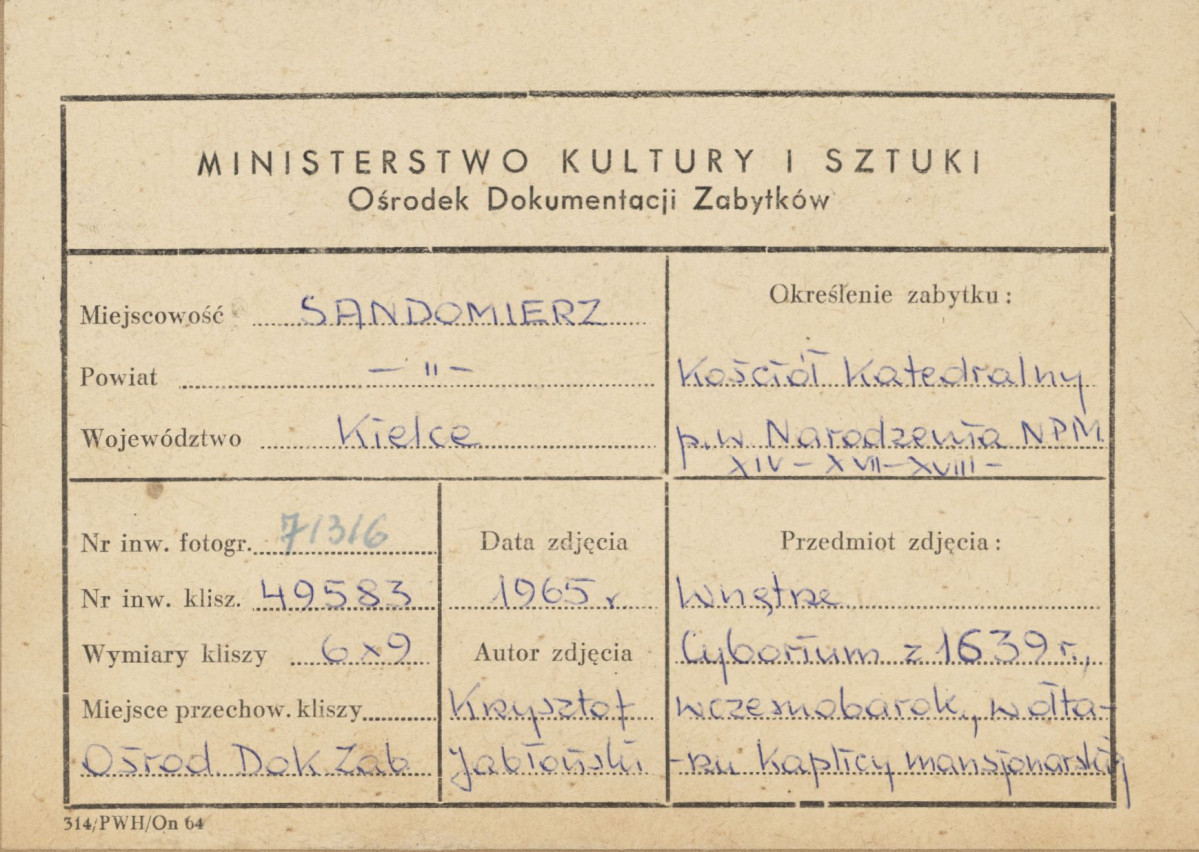 MINISTERSTWO KULTURY I SZTUKI
Ośrodek Dokumentacji Zabytków
Miejscowość SANDOMIERZ
Powiat — " —
Województwo Kielce
Określenie zabytku:
Kościół Katedralny
p.w Narodzenia NPM
XIV – XVII – XVIII –
Nr inw. fotogr. 71316
Nr inw. klisz. 49583
Wymiary kliszy 6x9
Miejsce przechow. kliszy
Ośrod. Dok Zab
Data zdjęcia
1965 r
Autor zdjęcia
Krysztof
Jabłoński
Przedmiot zdjęcia:
Wnętrze
Cyborium z 1639 r.,
wczesnobarok., w ołta-
-rzu Kaplicy mansjonarskiej
314/PWH/On 64